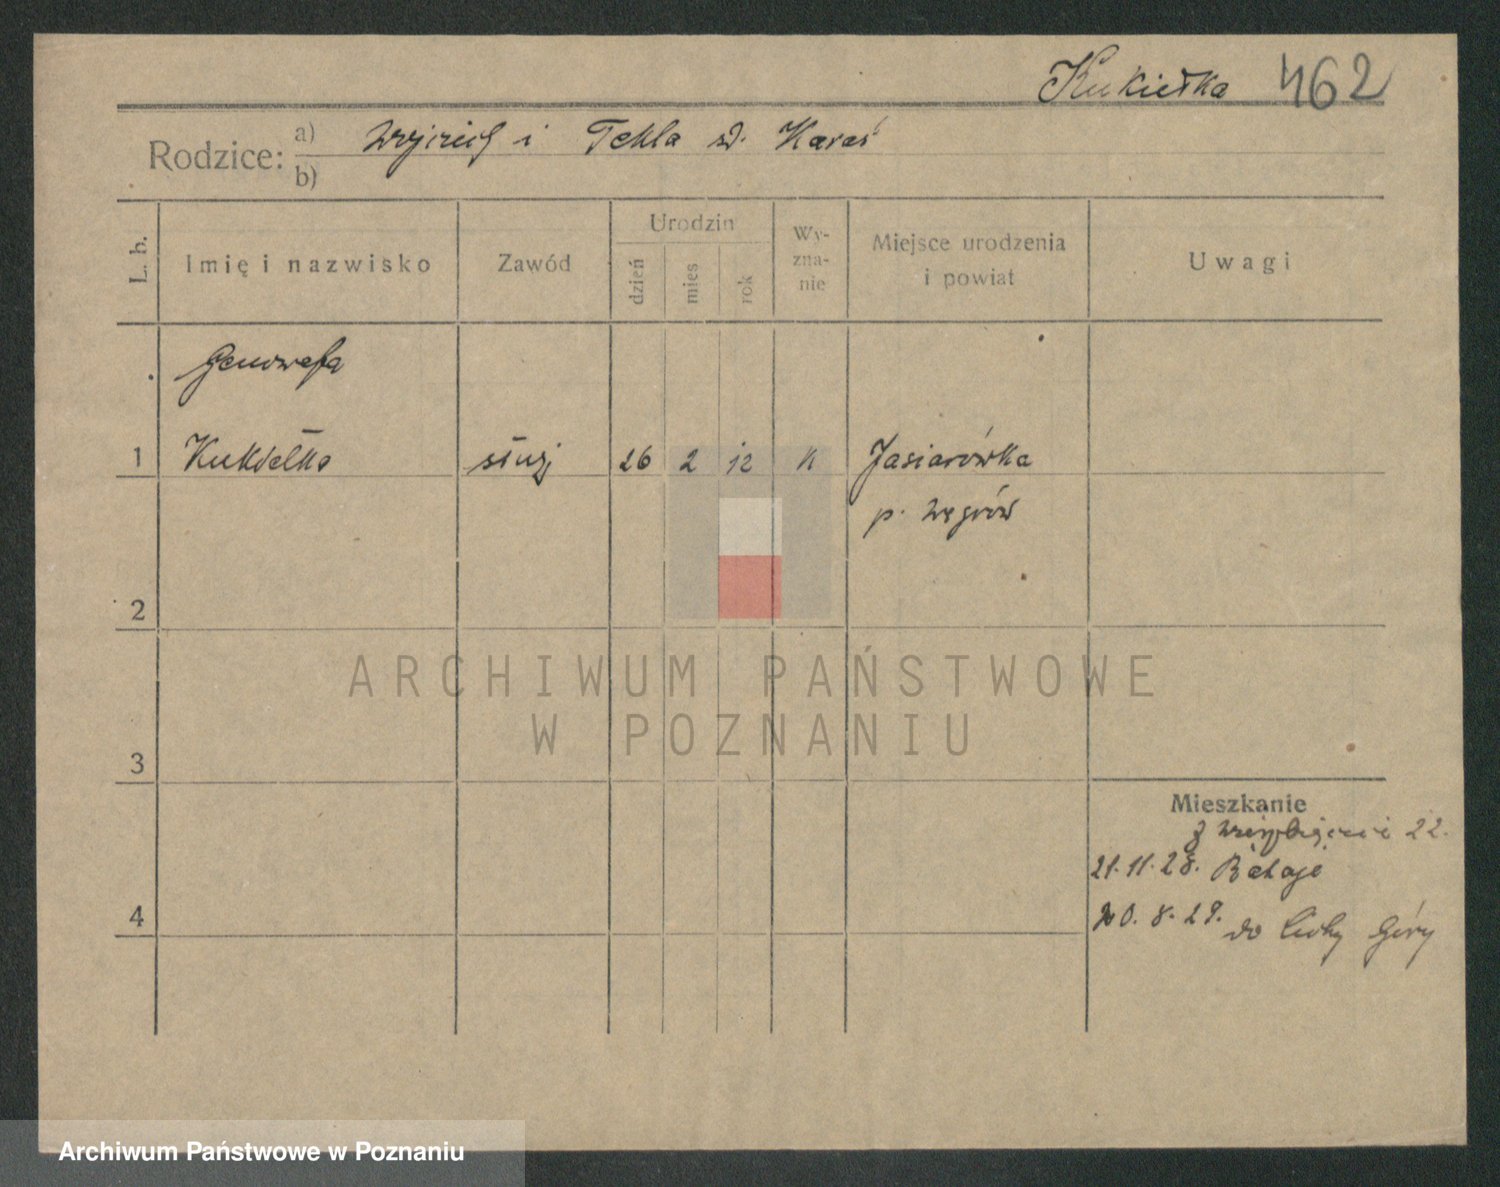 Kukiełka 462
Rodzice: a) Wojciech i Tekla d. Karaś
b)
L. b. Imię i nazwisko Zawód Urodzin dzień mies rok Wy-zna-nie Miejsce urodzenia i powiat Uwagi
Genowefa
1 Kukiełka służ 26 2 12 k Jasiorówka
p. Węgrów
2
3
4
ARCHIWUM PAŃSTWOWE
W POZNANIU
Mieszkanie
z 22.
21.11.28. Rataje
20.8.29. do Góry
Archiwum Państwowe w Poznaniu